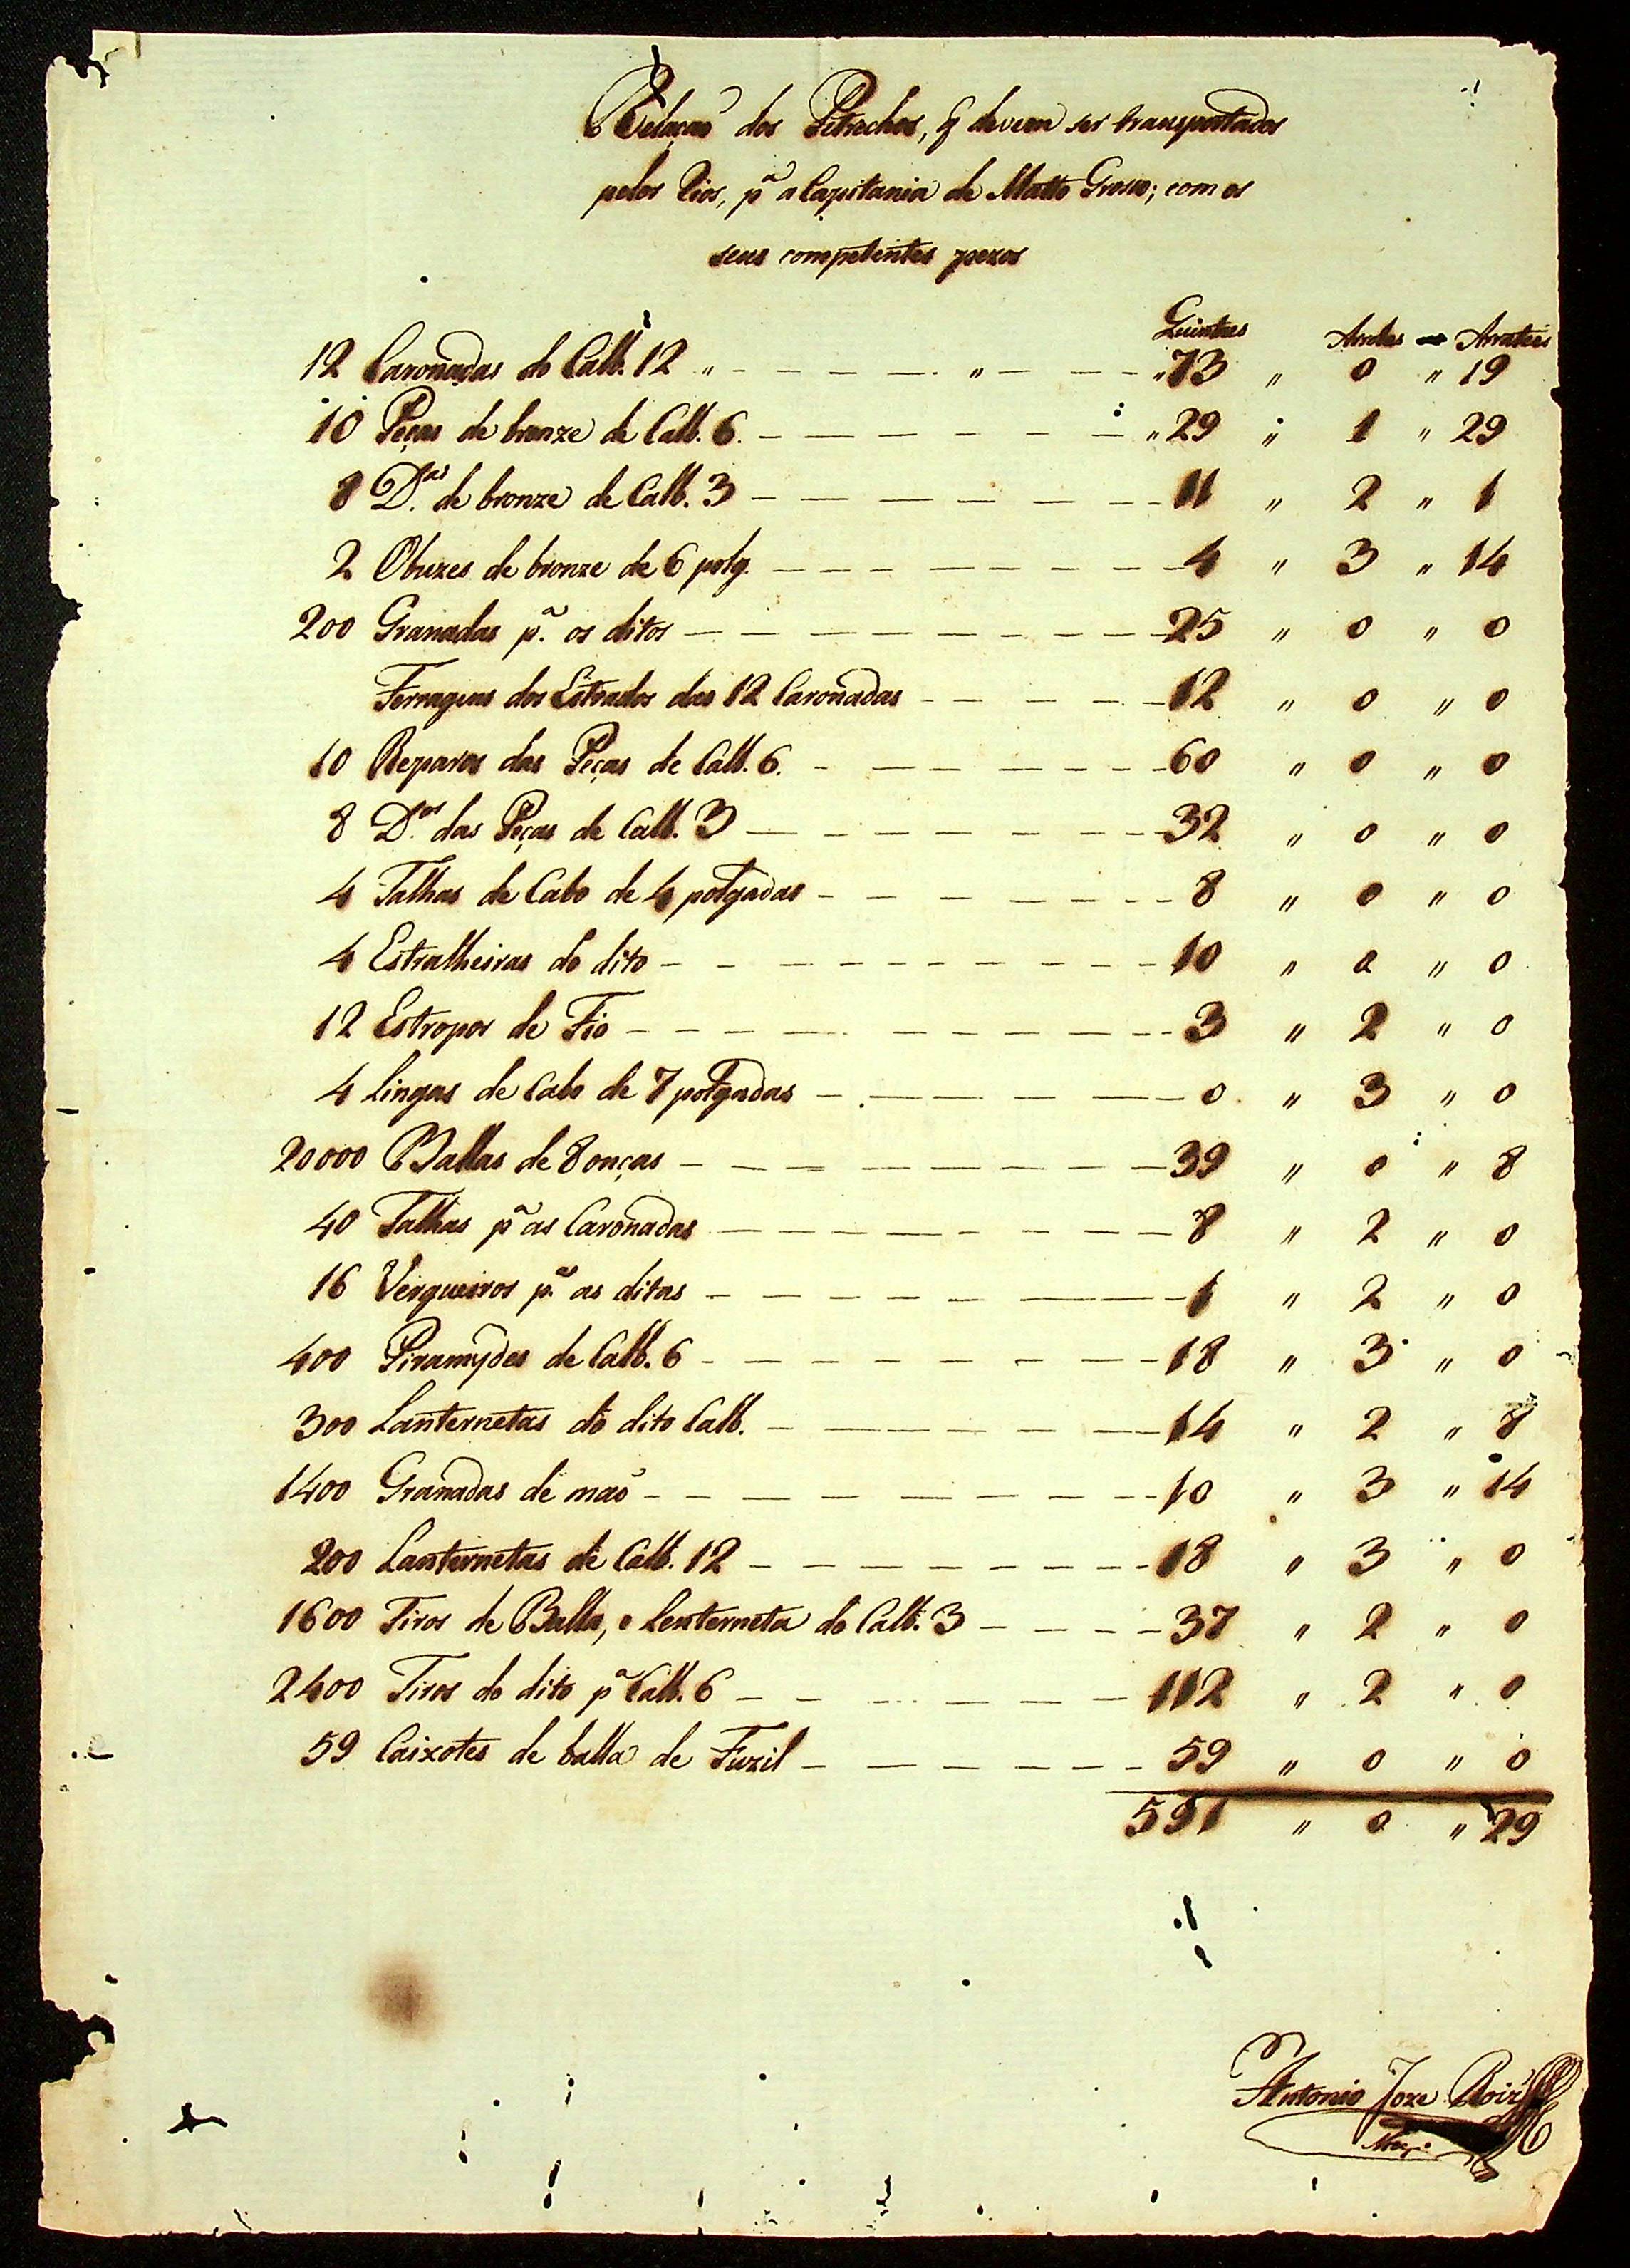 Relação dos Petrechos, q devem ser transportados
pelos Rios, pª a Capitania de Matto Grosso; com os
seus competentes pezos
Quintaes Arrobas Arrateis
12 Caronadas do Calb. 12 „ - - - - - „ - - - „ 73 „ 0 „ 19
10 Peças de bronze de Calb. 6. - - - - - - - „ 29 „ 1 „ 29
8 D.as de bronze de Calb. 3 - - - - - - - 11 „ 2 „ 1
2 Obuzes de bronze de 6 polg. - - - - - - - - 4 „ 3 „ 14
200 Granadas p.ª os ditos - - - - - - - - - 25 „ 0 „ 0
Ferragens dos Estrados das 12 Caronadas - - - - - 12 „ 0 „ 0
10 Reparos das Peças de Calb. 6. - - - - - - - 60 „ 0 „ 0
8 D.os das Peças de Calb. 3 - - - - - - - - 32 „ 0 „ 0
4 Talhas de Cabo de 4 polgadas - - - - - - - - 8 „ 0 „ 0
4 Estralheiras do dito - - - - - - - - - - - 10 „ 0 „ 0
12 Estropos de Fio - - - - - - - - - - - 3 „ 2 „ 0
4 Lingas de Cabo de 7 polgadas - - - - - - 0 „ 3 „ 0
20000 Ballas de 8 onças - - - - - - - - - 39 „ 0 „ 8
40 Talhas pª as Caronadas - - - - - - - - - 8 „ 2 „ 0
16 Vergueiros p.ª as ditas - - - - - - - - - 1 „ 2 „ 0
400 Piramydes de Calb. 6 - - - - - - - - - 18 „ 3 „ 0
300 Lanternetas do dito Calb. - - - - - - - 14 „ 2 „ 8
1400 Granadas de mão - - - - - - - - - - 10 „ 3 „ 14
200 Lanternetas de Calb. 12 - - - - - - - - 18 „ 3 „ 0
1600 Tiros de Balla, e Lenterneta do Calb. 3 - - - - 37 „ 2 „ 0
2400 Tiros do dito pª Calb. 6 - - - - - - - 112 „ 2 „ 0
59 Caixotes de balla de Fuzil - - - - - - - 59 „ 0 „ 0
591 „ 0 „ 29
Antonio Joze Roiz